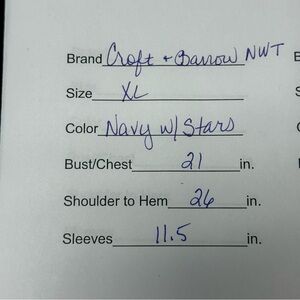 Brand Croft + Barrow NWT
Size XL
Color Navy w/ Stars
Bust/Chest 21 in.
Shoulder to Hem 26 in.
Sleeves 11.5 in.